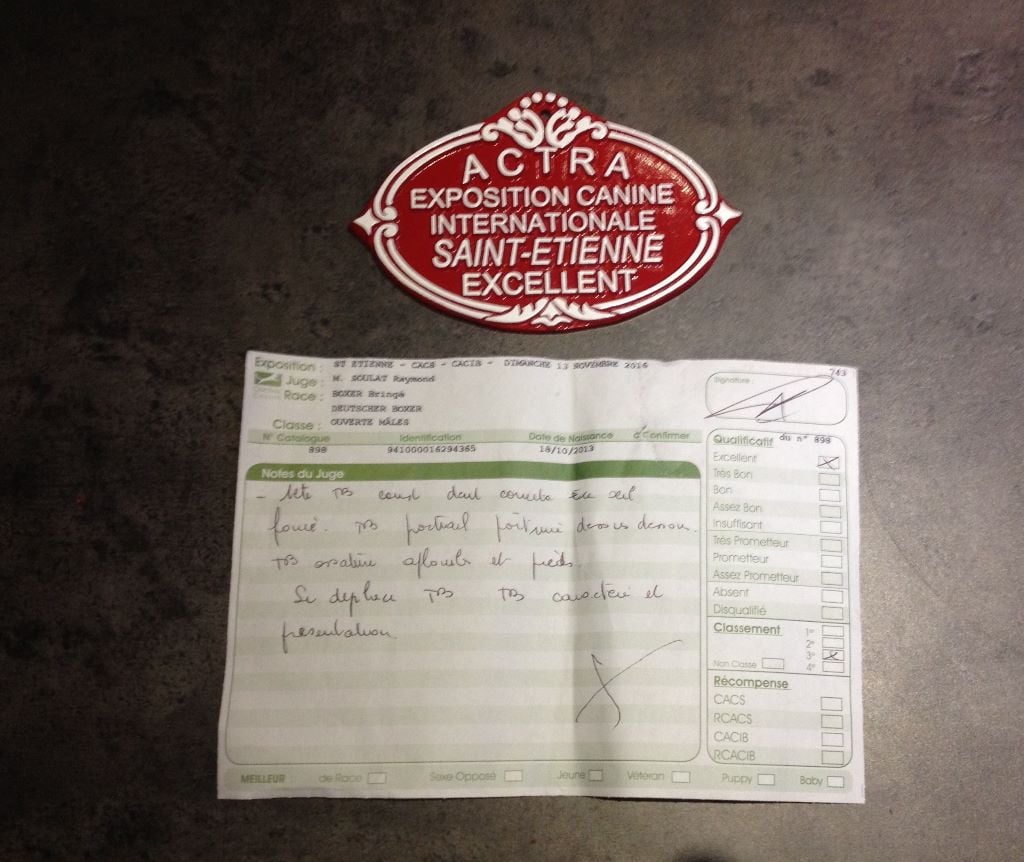 ACTRA
EXPOSITION CANINE
INTERNATIONALE
SAINT-ETIENNE
EXCELLENT
Exposition : ST ETIENNE - CACS - CACIB - DIMANCHE 13 NOVEMBRE 2016
743
Juge : M. SOULAT Raymond
Signature :
Race : BOXER Bringé
DEUTSCHER BOXER
Classe : OUVERTE MÂLES
N° Catalogue Identification Date de Naissance à Confirmer
898 941000016294365 18/10/2013
Qualificatif du n° 898
Excellent
Très Bon
Bon
Assez Bon
Insuffisant
Très Prometteur
Prometteur
Assez Prometteur
Absent
Disqualifié
Notes du Juge
- tête TB oeil
foncé. TB poitrail dessus dessous.
TB ossature aplombs et pieds.
Se déplace TB TB caractère et
présentation
Classement 1er
2e
3e
Non Classé 4e
Récompense
CACS
RCACS
CACIB
RCACIB
MEILLEUR de Race Sexe Opposé Jeune Vétéran Puppy Baby